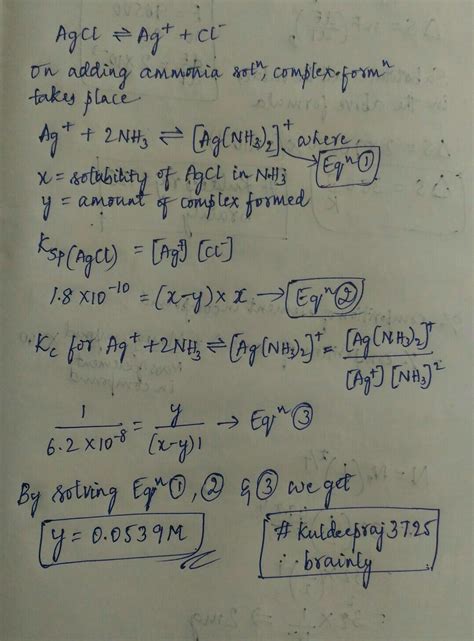 AgCl ⇌ Ag⁺ + Cl⁻
On adding ammonia solⁿ, complex formⁿ
takes place
Ag⁺ + 2NH₃ ⇌ [Ag(NH₃)₂]⁺ where,
Eqⁿ ①
x = solability of AgCl in NH₃
y = amount of complex formed
Ksp(AgCl) = [Ag⁺] [Cl⁻]
1.8 × 10⁻¹⁰ = (x-y) × x → Eqⁿ ②
Kc for Ag⁺ + 2NH₃ ⇌ [Ag(NH₃)₂]⁺ = [Ag(NH₃)₂]⁺ / [Ag⁺] [NH₃]²
1 / 6.2 × 10⁻⁸ = y / (x-y)1 → Eqⁿ ③
By solving Eqⁿ ①, ② & ③ we get
y = 0.0539M
# Kuldeepraj3725
brainly